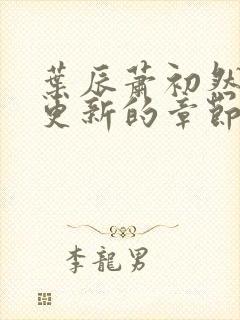 葉辰蕭初然
更新的章節
李龍男